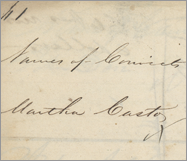 41
Names of Convicts
Martha Castor